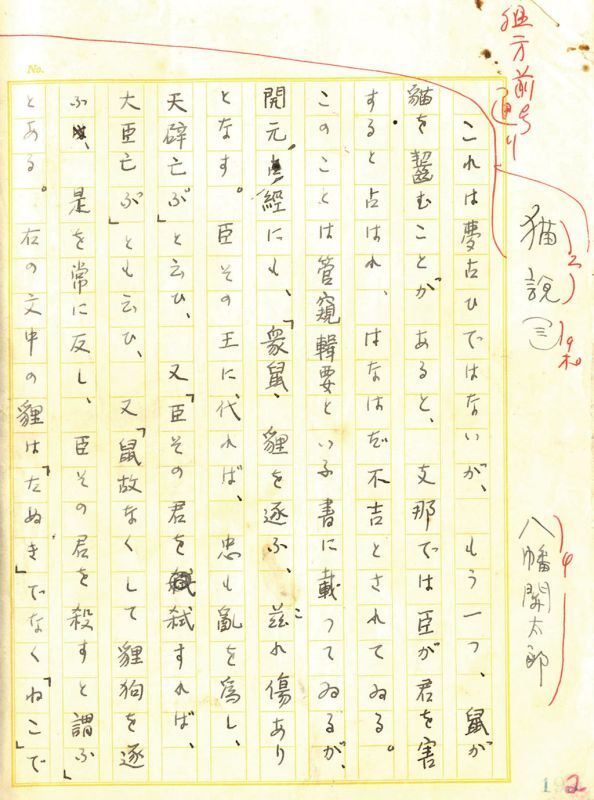 組方前号
通り
猫説
(三)
八幡関太郎
これは夢占ひではないが、もう一つ、鼠が
貓を齧むことがあると、支那では臣が君を害
すると占はれ、はなはだ不吉とされてゐる。
このことは管窺輯要といふ書に載つてゐるが、
開元占經にも、「衆鼠、貍を逐ふ、茲れ傷あり
となす。臣その王に代れば、忠も亂を為し、
天辟亡ぶ」と云ひ、又「臣その君を弑すれば、
大臣亡ぶ」とも云ひ、又「鼠故なくして貍狗を逐
ふは、是を常に反し、臣その君を殺すと謂ふ」
とある。右の文中の貍は「たぬき」でなく「ねこ」で
No.
192